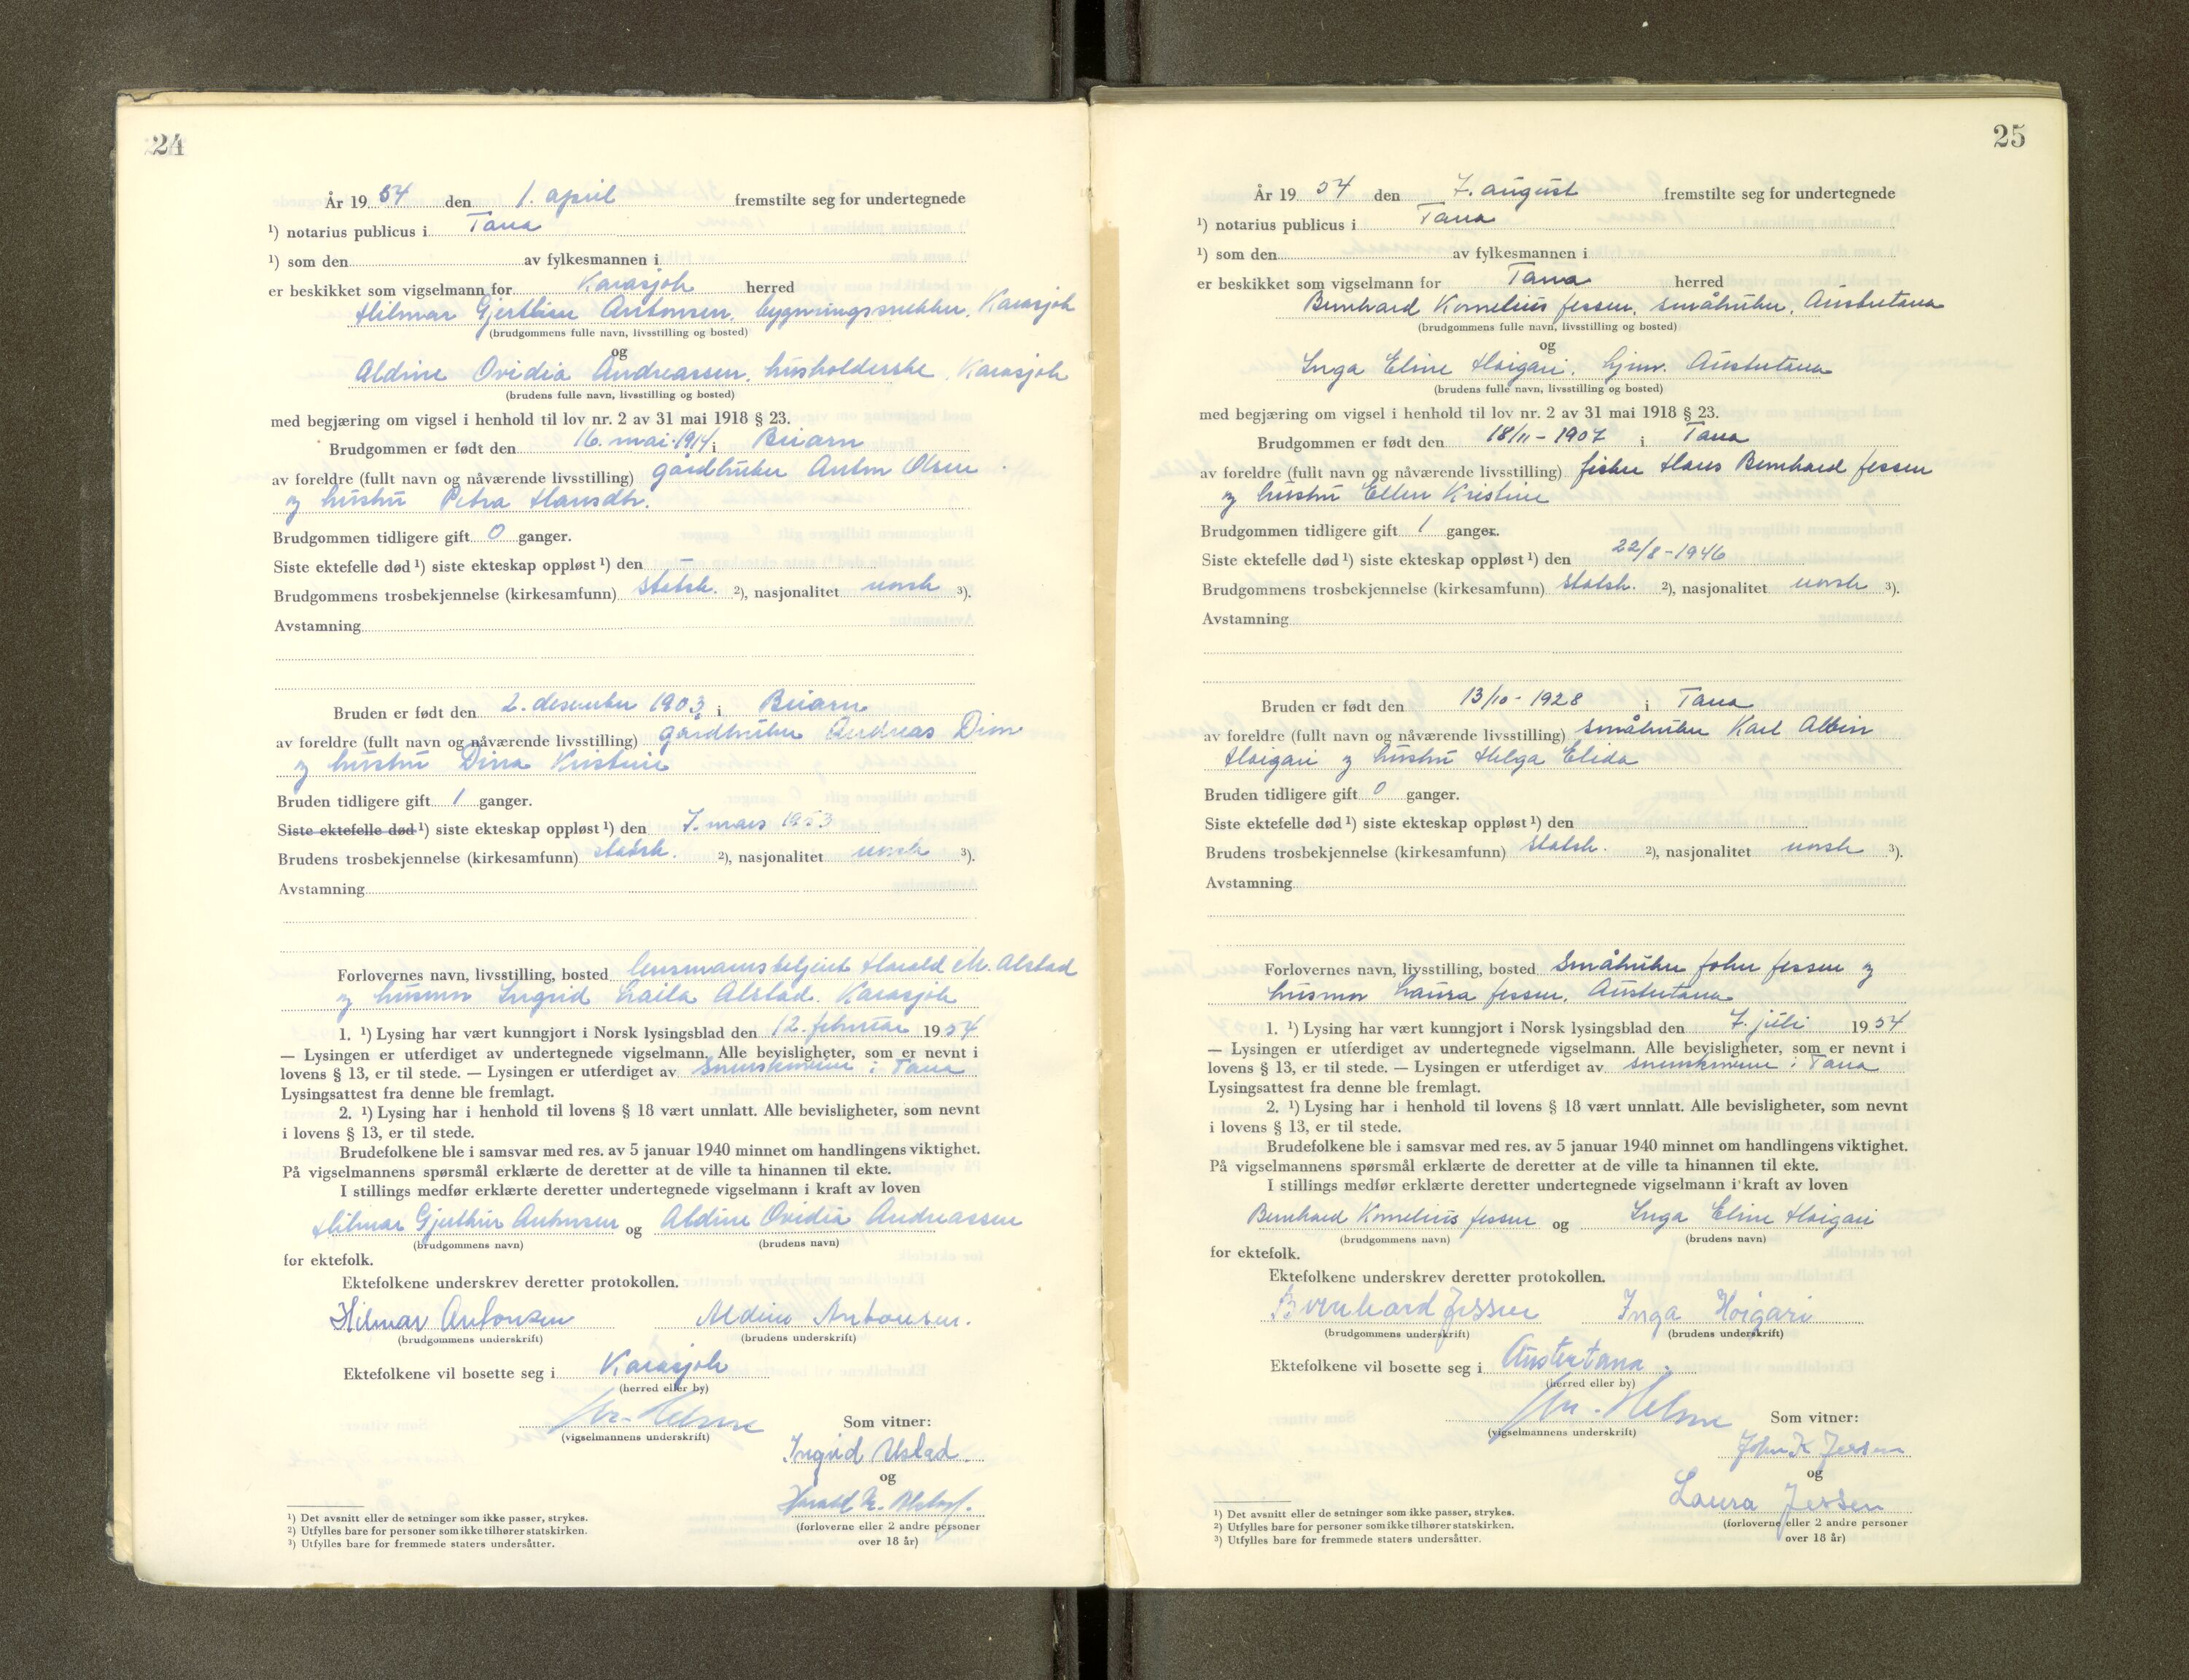 24
År 19 54 den 1. april fremstilte seg for undertegnede
¹) notarius publicus i Tana
¹) som den av fylkesmannen i
er beskikket som vigselmann for Karasjok herred
Hilmar Gjerthin Antonsen, bygningssnekker, Karasjok
(brudgommens fulle navn, livsstilling og bosted)
og
Aldine Ovidia Andreassen, husholderske, Karasjok
(brudens fulle navn, livsstilling og bosted)
med begjæring om vigsel i henhold til lov nr. 2 av 31 mai 1918 § 23.
Brudgommen er født den 16. mai 1914 i Beiarn
av foreldre (fullt navn og nåværende livsstilling) gårdbruker Anton Olsen
og hustru Petra Hansdtr.
Brudgommen tidligere gift 0 ganger.
Siste ektefelle død ¹) siste ekteskap oppløst ¹) den —
Brudgommens trosbekjennelse (kirkesamfunn) statsk. ²), nasjonalitet norsk ³).
Avstamning
Bruden er født den 2. desember 1903 i Beiarn
av foreldre (fullt navn og nåværende livsstilling) gårdbruker Andreas
og hustru Dina Kristine
Bruden tidligere gift 1 ganger.
Siste ektefelle død ¹) siste ekteskap oppløst ¹) den 7. mars 1953
Brudens trosbekjennelse (kirkesamfunn) statsk. ²), nasjonalitet norsk ³).
Avstamning
Forlovernes navn, livsstilling, bosted lensmannsbetjent Harald M. Alstad
og husmor Ingrid Laila Alstad, Karasjok
1. ¹) Lysing har vært kunngjort i Norsk lysingsblad den 12. februar 1954
— Lysingen er utferdiget av undertegnede vigselmann. Alle bevisligheter, som er nevnt i
lovens § 13, er til stede. — Lysingen er utferdiget av sorenskriveren i Tana
Lysingsattest fra denne ble fremlagt.
2. ¹) Lysing har i henhold til lovens § 18 vært unnlatt. Alle bevisligheter, som nevnt
i lovens § 13, er til stede.
Brudefolkene ble i samsvar med res. av 5 januar 1940 minnet om handlingens viktighet.
På vigselmannens spørsmål erklærte de deretter at de ville ta hinannen til ekte.
I stillings medfør erklærte deretter undertegnede vigselmann i kraft av loven
Hilmar Gjerthin Antonsen og Aldine Ovidia Andreassen
(brudgommens navn) (brudens navn)
for ektefolk.
Ektefolkene underskrev deretter protokollen.
Hilmar Antonsen Aldine Antonsen.
(brudgommens underskrift) (brudens underskrift)
Ektefolkene vil bosette seg i Karasjok
(herred eller by)
(vigselmannens underskrift)
Som vitner:
Ingrid Alstad
og
Harald M. Alstad.
(forloverne eller 2 andre personer
over 18 år)
¹) Det avsnitt eller de setninger som ikke passer, strykes.
²) Utfylles bare for personer som ikke tilhører statskirken.
³) Utfylles bare for fremmede staters undersåtter.
25
År 19 54 den 7. august fremstilte seg for undertegnede
¹) notarius publicus i Tana
¹) som den av fylkesmannen i
er beskikket som vigselmann for Tana herred
Bernhard Kornelius Jessen, småbruker, Austertana
(brudgommens fulle navn, livsstilling og bosted)
og
Inga Eline Hoigari, hjmv. Austertana
(brudens fulle navn, livsstilling og bosted)
med begjæring om vigsel i henhold til lov nr. 2 av 31 mai 1918 § 23.
Brudgommen er født den 18/11 - 1907 i Tana
av foreldre (fullt navn og nåværende livsstilling) fisker Hans Bernhard Jessen
og hustru Ellen Kristine
Brudgommen tidligere gift 1 ganger.
Siste ektefelle død ¹) siste ekteskap oppløst ¹) den 22/8 - 1946
Brudgommens trosbekjennelse (kirkesamfunn) statsk. ²), nasjonalitet norsk ³).
Avstamning
Bruden er født den 13/10 - 1928 i Tana
av foreldre (fullt navn og nåværende livsstilling) småbruker Karl Albin
Hoigari og hustru Helga Elida
Bruden tidligere gift 0 ganger.
Siste ektefelle død ¹) siste ekteskap oppløst ¹) den
Brudens trosbekjennelse (kirkesamfunn) statsk. ²), nasjonalitet norsk ³).
Avstamning
Forlovernes navn, livsstilling, bosted Småbruker John Jessen og
husmor Laura Jessen, Austertana
1. ¹) Lysing har vært kunngjort i Norsk lysingsblad den 7. juli 1954
— Lysingen er utferdiget av undertegnede vigselmann. Alle bevisligheter, som er nevnt i
lovens § 13, er til stede. — Lysingen er utferdiget av sorenskriveren i Tana
Lysingsattest fra denne ble fremlagt.
2. ¹) Lysing har i henhold til lovens § 18 vært unnlatt. Alle bevisligheter, som nevnt
i lovens § 13, er til stede.
Brudefolkene ble i samsvar med res. av 5 januar 1940 minnet om handlingens viktighet.
På vigselmannens spørsmål erklærte de deretter at de ville ta hinannen til ekte.
I stillings medfør erklærte deretter undertegnede vigselmann i kraft av loven
Bernhard Kornelius Jessen og Inga Eline Hoigari
(brudgommens navn) (brudens navn)
for ektefolk.
Ektefolkene underskrev deretter protokollen.
Bernhard Jessen Inga Hoigari
(brudgommens underskrift) (brudens underskrift)
Ektefolkene vil bosette seg i Austertana.
(herred eller by)
(vigselmannens underskrift)
Som vitner:
John K Jessen
og
Laura Jessen
(forloverne eller 2 andre personer
over 18 år)
¹) Det avsnitt eller de setninger som ikke passer, strykes.
²) Utfylles bare for personer som ikke tilhører statskirken.
³) Utfylles bare for fremmede staters undersåtter.